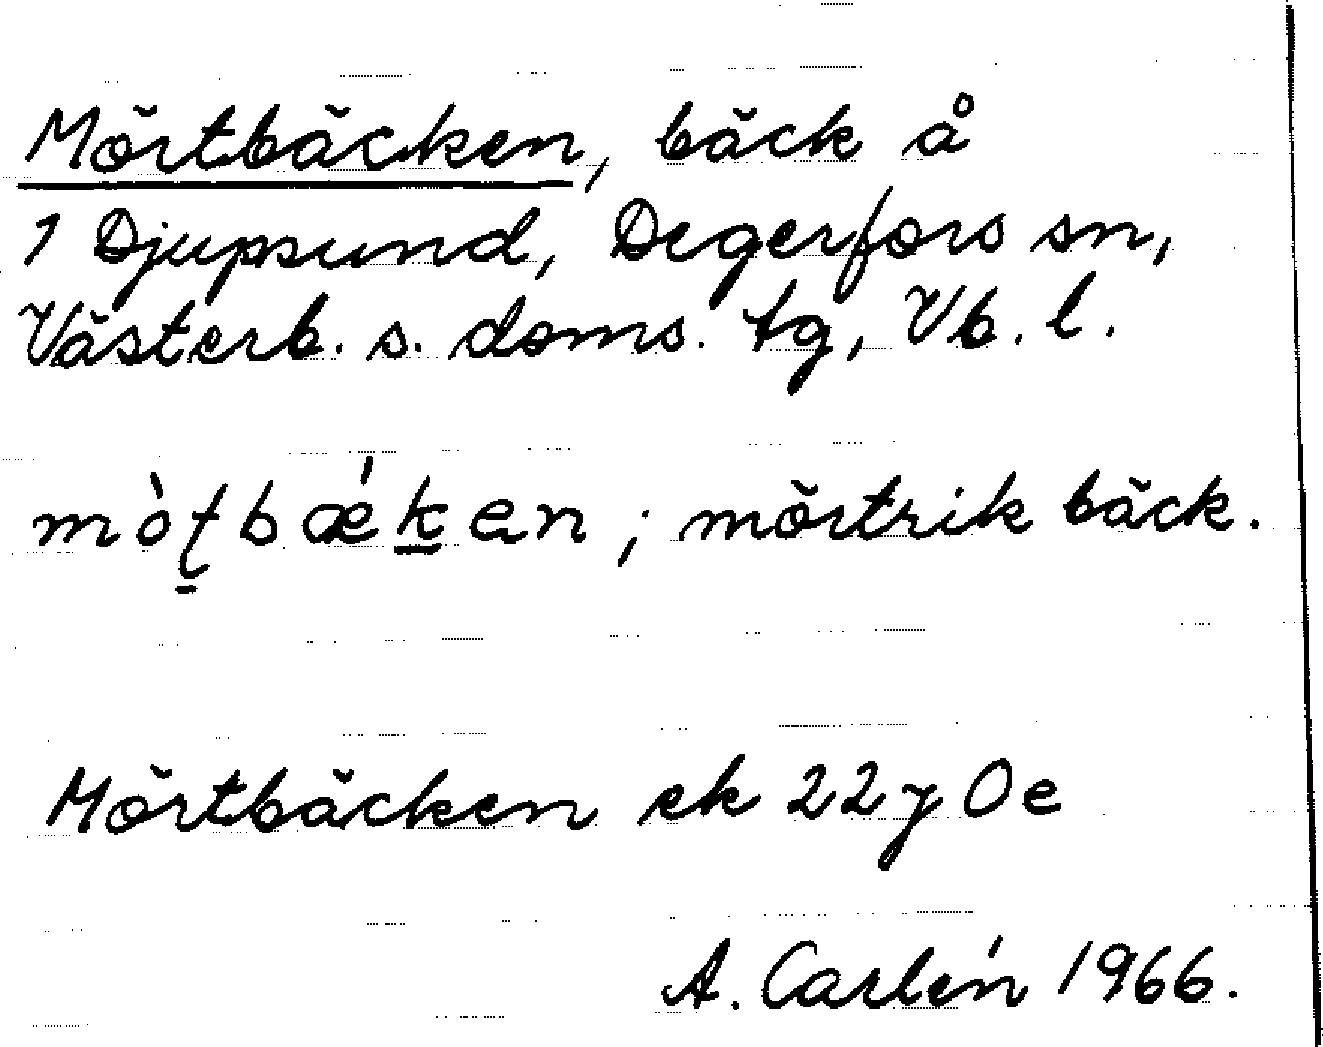 Mörtbäcken, bäck å
1 Djupsund, Degerfors sn,
Västerb. s. doms. tg, Vb. l.
mòʈbǽken ; mörtrik bäck.
Mörtbäcken ek 22y Oe
A. Carlén 1966.